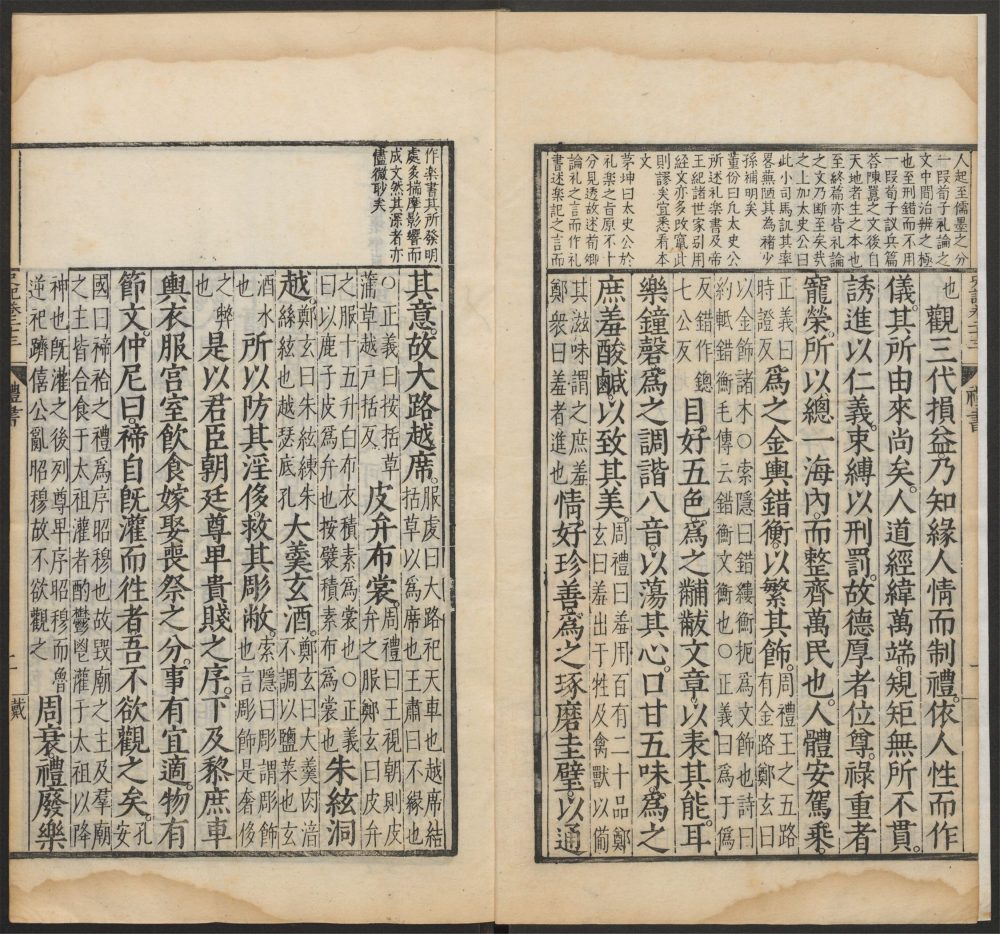 人起至儒墨之分
一段荀子礼論之
文中間治辨之極
也至刑錯而不用
一段荀子议兵篇
荅陳囂之文後自
天地者生之本也
至終篇亦皆礼論
之文乃断至矣哉
之上加太史公曰
此小司馬訊其率
畧蕪陋其為褚少
孫補明矣
董份曰凢太史公
所述礼楽書及帝
王紀諸世家引用
経文亦多改竄此
則謬矣宜悉看本
文
茅坤曰太史公於
礼楽之旨原不十
分見透故述荀卿
論礼之言而作礼
書述楽記之言而
也 觀三代損益。乃知緣人情而制禮。依人性而作
儀。其所由來尚矣。人道經緯萬端。規矩無所不貫。
誘進以仁義。束縛以刑罰。故德厚者位尊。祿重者
寵榮。所以總一海內。而整齊萬民也。人體安駕乘。
正義曰
時證反
爲之金輿錯衡。以繁其飾。
周禮王之五路
有金路鄭玄曰
以金飾諸木○索隱曰錯鏤衡扼爲文飾也詩曰
約軧錯衡毛傳云錯衡文衡也○正義曰爲于僞
反錯作總
七公反
目。好五色。爲之黼黻文章。以表其能。耳
樂鐘磬爲之調諧八音。以蕩其心。口甘五味。爲之
庶羞酸鹹。以致其美。
周禮曰羞用百有二十品鄭
玄曰羞出于牲及禽獸以備
其滋味謂之庶羞
鄭衆曰羞者進也
情。好珍善。爲之琢磨圭璧。以通
禮書
作楽書其所發明
處多揣摩影響而
成文然其深者亦
儘微眇矣
其意。故大路越席。
服虔曰大路祀天車也越席結
括草以爲席也王肅曰不緣也
○正義曰按括草
蒲草越户括反
皮弁布裳。
周禮曰王視朝則皮
弁之服鄭玄曰皮弁
之服十五升白布衣積素爲裳也○正義
曰以鹿子皮爲弁也按襞積素布爲裳也
朱絃洞
越。
鄭玄曰朱絃練朱
絲絃也越瑟底孔
大羹玄酒。
鄭玄曰大羹肉湆
不調以鹽菜也玄
酒水
也
所以防其淫侈。救其彫敝。
索隱曰彫謂彫飾
也言彫飾是奢侈
之弊
也
是以君臣朝廷尊卑貴賤之序。下及黎庶車
輿衣服宮室飲食嫁娶喪祭之分。事有宜適。物有
節文。仲尼曰。禘自既灌而徃者。吾不欲觀之矣。
孔
安
國曰禘祫之禮爲序昭穆也故毀廟之主及羣廟
之主皆合食于太祖灌者酌鬱鬯灌于太祖以降
神也既灌之後列尊卑序昭穆而魯
逆祀躋僖公亂昭穆故不欲觀之
周衰禮廢樂
禮書
戴